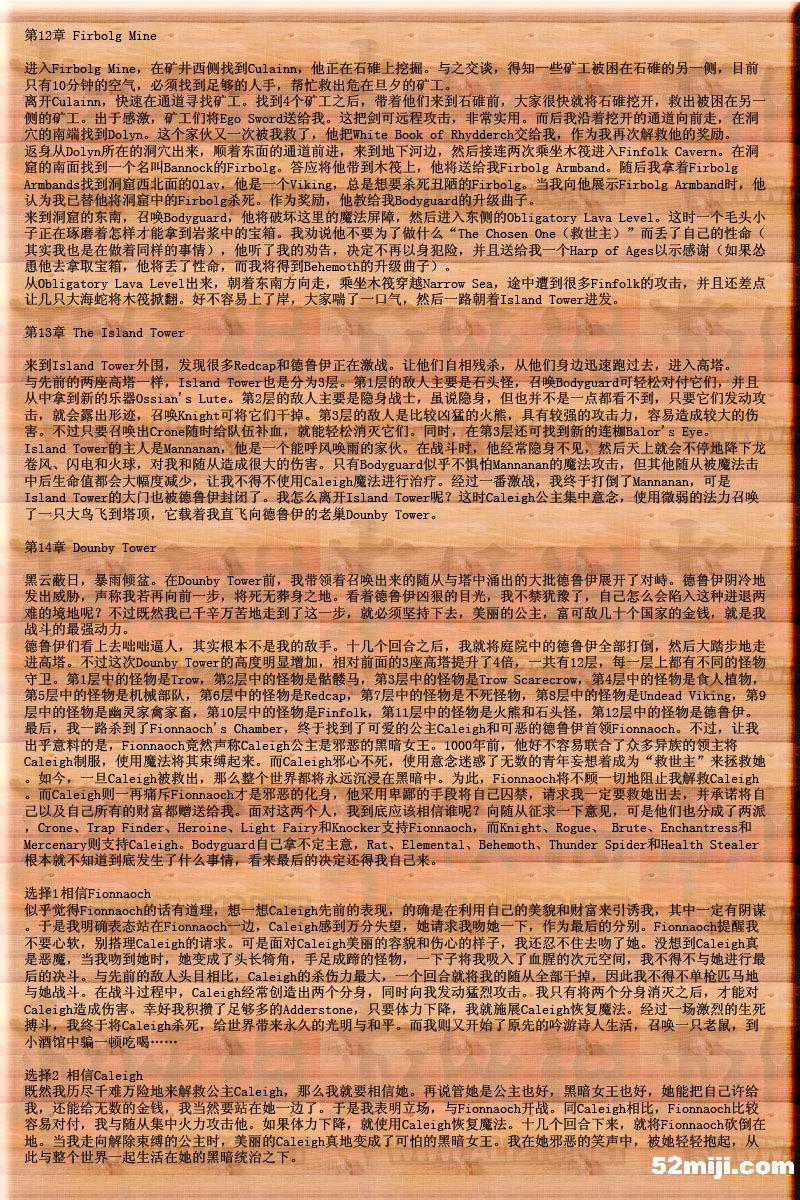 第12章 Firbolg Mine
进入Firbolg Mine，在矿井西侧找到Culainn，他正在石碓上挖掘。与之交谈，得知一些矿工被困在石碓的另一侧，目前
只有10分钟的空气，必须找到足够的人手，帮忙救出危在旦夕的矿工。
离开Culainn，快速在通道寻找矿工。找到4个矿工之后，带着他们来到石碓前，大家很快就将石碓挖开，救出被困在另一
侧的矿工。出于感激，矿工们将Ego Sword送给我。这把剑可远程攻击，非常实用。而后我沿着挖开的通道向前走，在洞
穴的南端找到Dolyn。这个家伙又一次被我救了，他把White Book of Rhydderch交给我，作为我再次解救他的奖励。
返身从Dolyn所在的洞穴出来，顺着东面的通道前进，来到地下河边，然后接连两次乘坐木筏进入Finfolk Cavern。在洞
窟的南面找到一个名叫Bannock的Firbolg。答应将他带到木筏上，他将送给我Firbolg Armband。随后我拿着Firbolg
Armbands找到洞窟西北面的Olav，他是一个Viking，总是想要杀死丑陋的Firbolg。当我向他展示Firbolg Armband时，他
认为我已替他将洞窟中的Firbolg杀死。作为奖励，他教给我Bodyguard的升级曲子。
来到洞窟的东南，召唤Bodyguard，他将破坏这里的魔法屏障，然后进入东侧的Obligatory Lava Level。这时一个毛头小
子正在琢磨着怎样才能拿到岩浆中的宝箱。我劝说他不要为了做什么“The Chosen One（救世主）”而丢了自己的性命（
其实我也是在做着同样的事情），他听了我的劝告，决定不再以身犯险，并且送给我一个Harp of Ages以示感谢（如果怂
恿他去拿取宝箱，他将丢了性命，而我将得到Behemoth的升级曲子）。
从Obligatory Lava Level出来，朝着东南方向走，乘坐木筏穿越Narrow Sea，途中遭到很多Finfolk的攻击，并且还差点
让几只大海蛇将木筏掀翻。好不容易上了岸，大家喘了一口气，然后一路朝着Island Tower进发。
第13章 The Island Tower
来到Island Tower外围，发现很多Redcap和德鲁伊正在激战。让他们自相残杀，从他们身边迅速跑过去，进入高塔。
与先前的两座高塔一样，Island Tower也是分为3层。第1层的敌人主要是石头怪，召唤Bodyguard可轻松对付它们，并且
从中拿到新的乐器Ossian's Lute。第2层的敌人主要是隐身战士，虽说隐身，但也并不是一点都看不到，只要它们发动攻
击，就会露出形迹，召唤Knight可将它们干掉。第3层的敌人是比较凶猛的火熊，具有较强的攻击力，容易造成较大的伤
害。不过只要召唤出Crone随时给队伍补血，就能轻松消灭它们。同时，在第3层还可找到新的连枷Balor's Eye。
Island Tower的主人是Mannanan，他是一个能呼风唤雨的家伙。在战斗时，他经常隐身不见，然后天上就会不停地降下龙
卷风、闪电和火球，对我和随从造成很大的伤害。只有Bodyguard似乎不惧怕Mannanan的魔法攻击，但其他随从被魔法击
中后生命值都会大幅度减少，让我不得不使用Caleigh魔法进行治疗。经过一番激战，我终于打倒了Mannanan，可是
Island Tower的大门也被德鲁伊封闭了。我怎么离开Island Tower呢？这时Caleigh公主集中意念，使用微弱的法力召唤
了一只大鸟飞到塔顶，它载着我直飞向德鲁伊的老巢Dounby Tower。
第14章 Dounby Tower
黑云蔽日，暴雨倾盆。在Dounby Tower前，我带领着召唤出来的随从与塔中涌出的大批德鲁伊展开了对峙。德鲁伊阴冷地
发出威胁，声称我若再向前一步，将死无葬身之地。看着德鲁伊凶狠的目光，我不禁犹豫了，自己怎么会陷入这种进退两
难的境地呢？不过既然我已千辛万苦地走到了这一步，就必须坚持下去，美丽的公主，富可敌几十个国家的金钱，就是我
战斗的最强动力。
德鲁伊们看上去咄咄逼人，其实根本不是我的敌手。十几个回合之后，我就将庭院中的德鲁伊全部打倒，然后大踏步地走
进高塔。不过这次Dounby Tower的高度明显增加，相对前面的3座高塔提升了4倍，一共有12层，每一层上都有不同的怪物
守卫。第1层中的怪物是Trow，第2层中的怪物是骷髅马，第3层中的怪物是Trow Scarecrow，第4层中的怪物是食人植物，
第5层中的怪物是机械部队，第6层中的怪物是Redcap，第7层中的怪物是不死怪物，第8层中的怪物是Undead Viking，第9
层中的怪物是幽灵家禽家畜，第10层中的怪物是Finfolk，第11层中的怪物是火熊和石头怪，第12层中的怪物是德鲁伊。
最后，我一路杀到了Fionnaoch's Chamber，终于找到了可爱的公主Caleigh和可恶的德鲁伊首领Fionnaoch。不过，让我
出乎意料的是，Fionnaoch竟然声称Caleigh公主是邪恶的黑暗女王。1000年前，他好不容易联合了众多异族的领主将
Caleigh制服，使用魔法将其束缚起来。而Caleigh邪心不死，使用意念迷惑了无数的青年妄想着成为“救世主”来拯救她
。如今，一旦Caleigh被救出，那么整个世界都将永远沉浸在黑暗中。为此，Fionnaoch将不顾一切地阻止我解救Caleigh
。而Caleigh则一再痛斥Fionnaoch才是邪恶的化身，他采用卑鄙的手段将自己囚禁，请求我一定要救她出去，并承诺将自
己以及自己所有的财富都赠送给我。面对这两个人，我到底应该相信谁呢？向随从征求一下意见，可是他们也分成了两派
，Crone、Trap Finder、Heroine、Light Fairy和Knocker支持Fionnaoch，而Knight、Rogue、 Brute、Enchantress和
Mercenary则支持Caleigh。Bodyguard自己拿不定主意，Rat、Elemental、Behemoth、Thunder Spider和Health Stealer
根本就不知道到底发生了什么事情，看来最后的决定还得我自己来。
选择1相信Fionnaoch
似乎觉得Fionnaoch的话有道理，想一想Caleigh先前的表现，的确是在利用自己的美貌和财富来引诱我，其中一定有阴谋
。于是我明确表态站在Fionnaoch一边，Caleigh感到万分失望，她请求我吻她一下，作为最后的分别。Fionnaoch提醒我
不要心软，别搭理Caleigh的请求。可是面对Caleigh美丽的容貌和伤心的样子，我还忍不住去吻了她。没想到Caleigh真
是恶魔，当我吻到她时，她变成了头长犄角，手足成蹄的怪物，一下子将我吸入了血腥的次元空间，我不得不与她进行最
后的决斗。与先前的敌人头目相比，Caleigh的杀伤力最大，一个回合就将我的随从全部干掉，因此我不得不单枪匹马地
与她战斗。在战斗过程中，Caleigh经常创造出两个分身，同时向我发动猛烈攻击。我只有将两个分身消灭之后，才能对
Caleigh造成伤害。幸好我积攒了足够多的Adderstone，只要体力下降，我就施展Caleigh恢复魔法。经过一场激烈的生死
搏斗，我终于将Caleigh杀死，给世界带来永久的光明与和平。而我则又开始了原先的吟游诗人生活，召唤一只老鼠，到
小酒馆中骗一顿吃喝……
选择2 相信Caleigh
既然我历尽千难万险地来解救公主Caleigh，那么我就要相信她。再说管她是公主也好，黑暗女王也好，她能把自己许给
我，还能给无数的金钱，我当然要站在她一边了。于是我表明立场，与Fionnaoch开战。同Caleigh相比，Fionnaoch比较
容易对付，我与随从集中火力攻击他。如果体力下降，就使用Caleigh恢复魔法。十几个回合下来，就将Fionnaoch砍倒在
地。当我走向解除束缚的公主时，美丽的Caleigh真地变成了可怕的黑暗女王。我在她邪恶的笑声中，被她轻轻抱起，从
此与整个世界一起生活在她的黑暗统治之下。
52miji.com